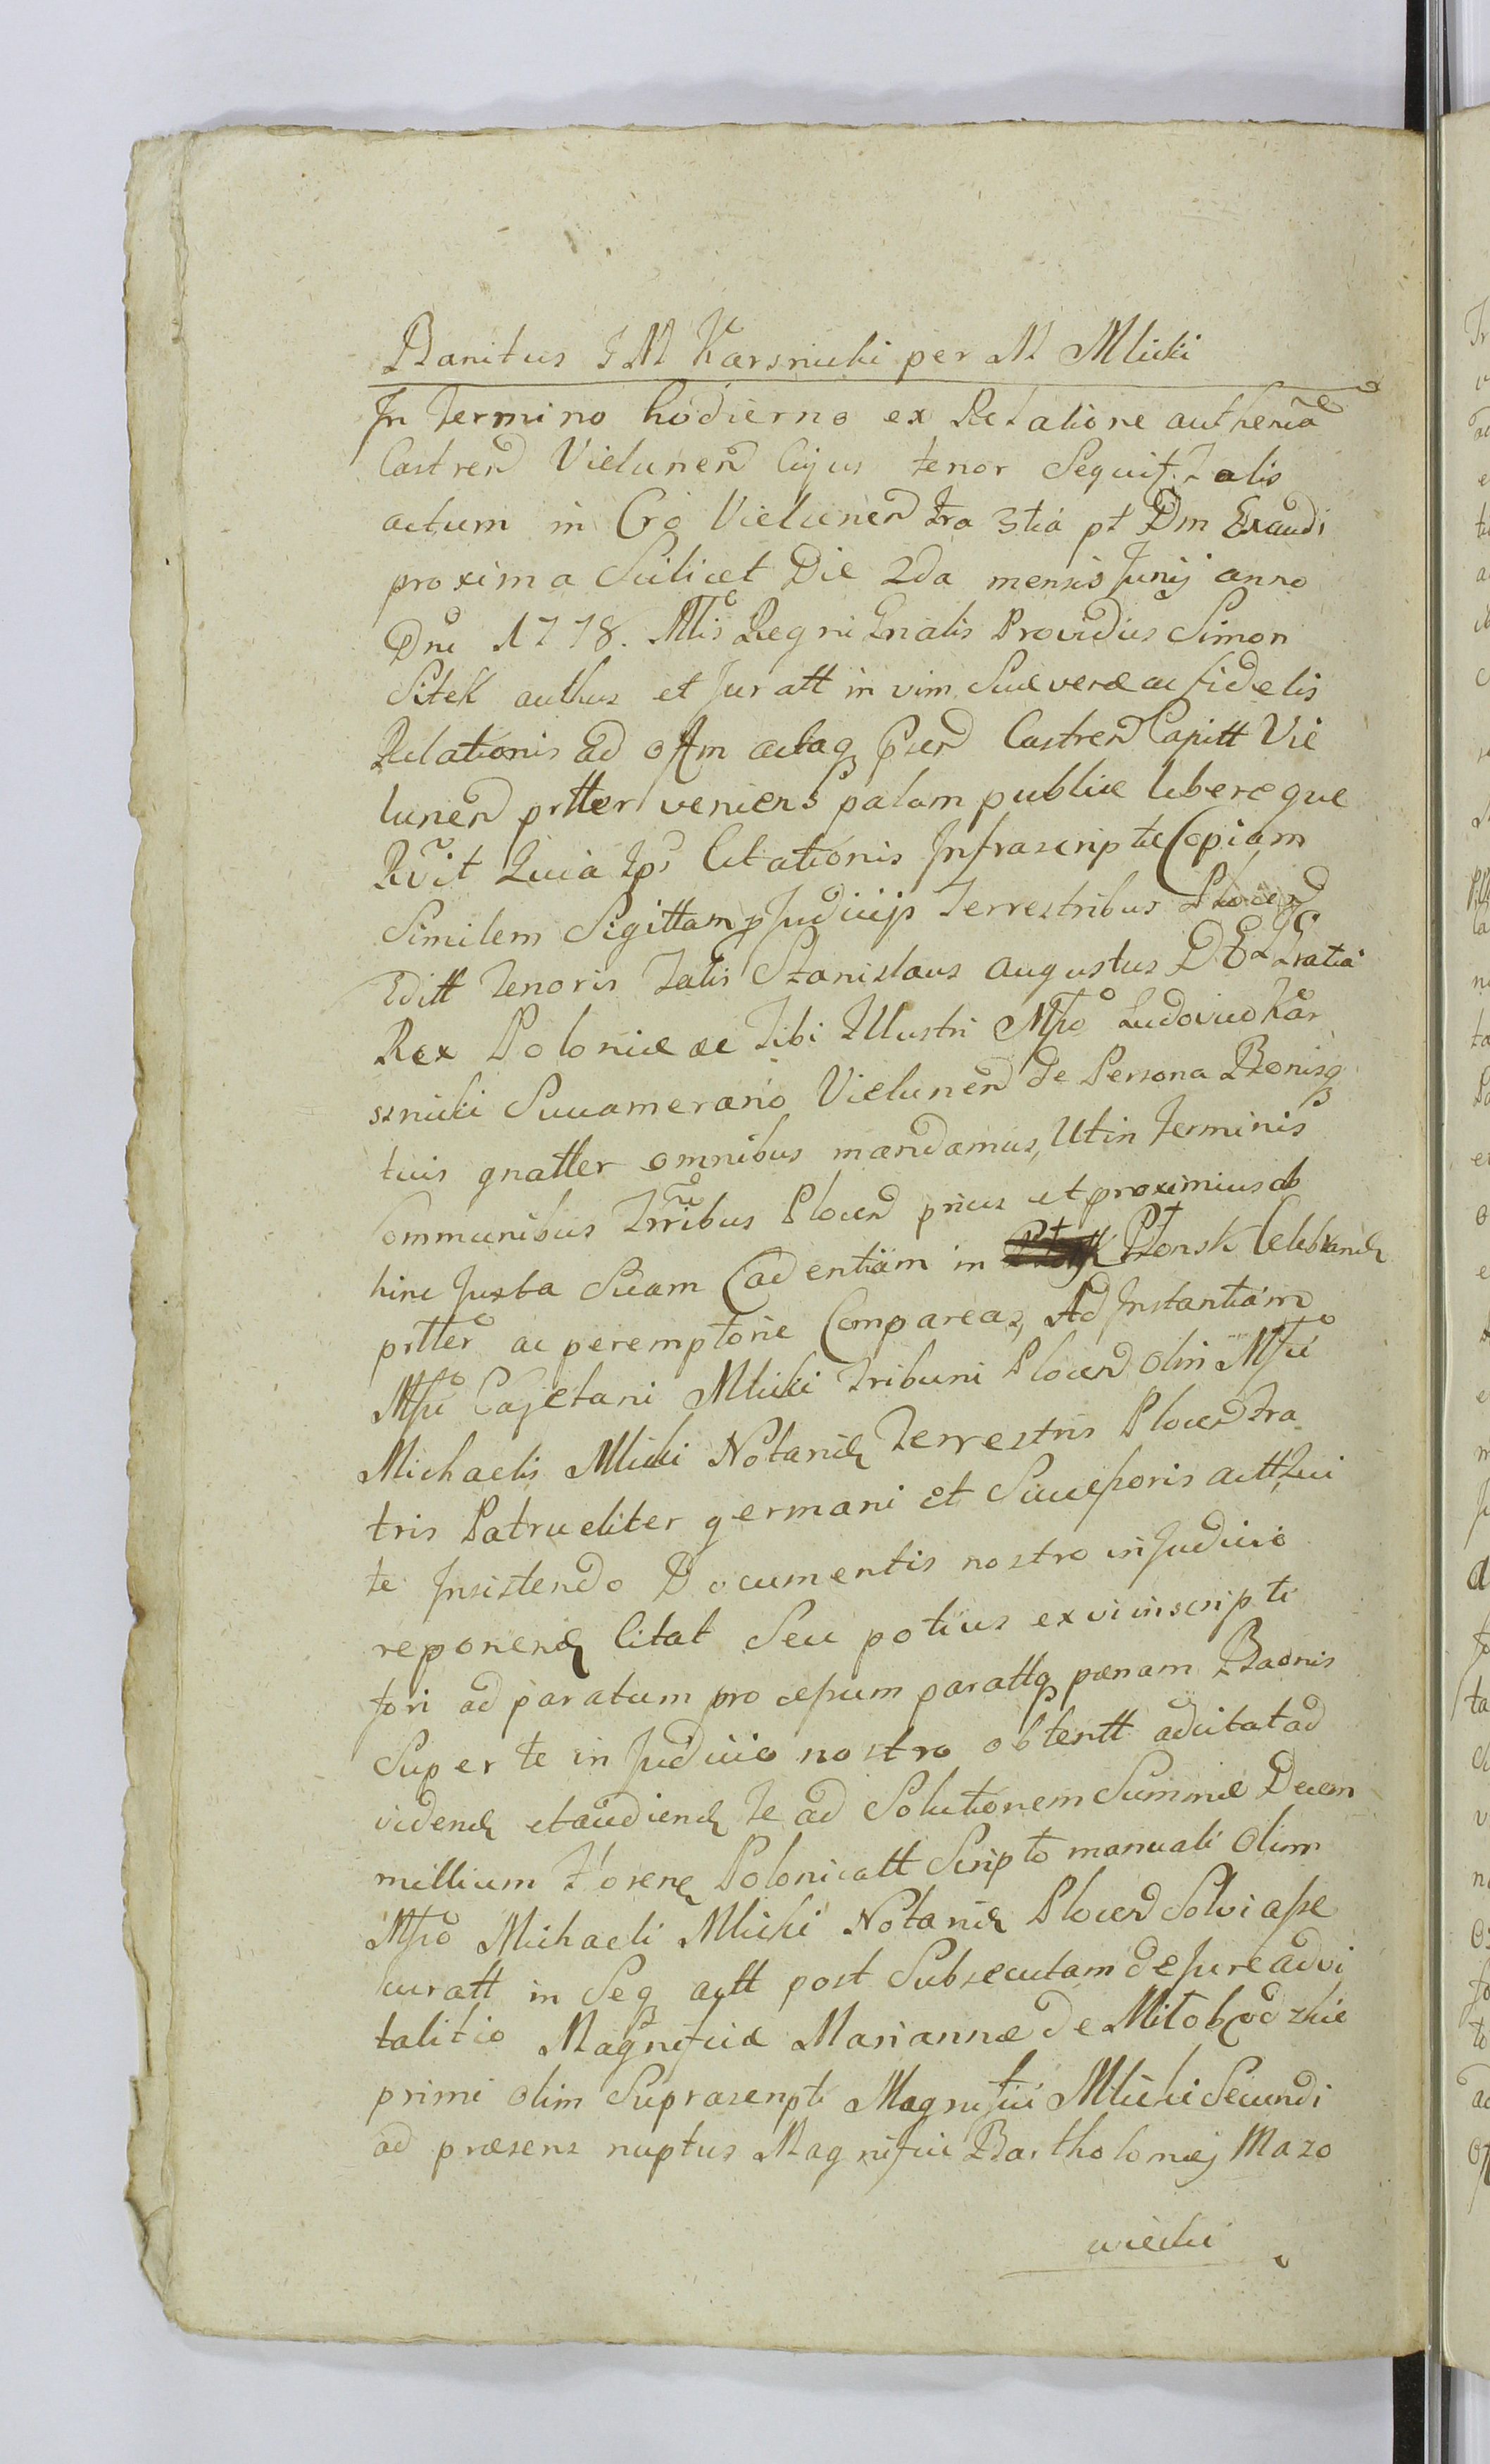 Banitus I M Karsnicki per M Mlicki
In Termino hodierno ex Relatione authenca
Castren Vielunen Cujus tenor Sequit. Talis
actum in Cro Vielunen fra 3tia pt Dm Exaudi
proxima Scilicet Die 2da mensis Junij anno
Dni 1778. Mtis Regni Gnalis Providus Simon
Sitek authus et Juratt in vim Suæ veræ ac fidelis
Relationis ad offm actaq pnen Castren Capitt Vie
lunen prtter veniens palam publice libereque
Rvit Quia Ips Citationis Infrascriptæ Copiam
Similem Sigittam p Judicijs Terrestribus Plocen
Editt Tenoris Talis Stanislaus Augustus DEI Gratia
Rex Poloniæ ac Tibi Illustri Mfco Ludovico Kar
snicki Succamerario Vielunen de Persona Bonisq
tuis gnatter omnibus mandamus, Ut in Terminis
Communibus Trribus Plocen prius et proximius ab
hinc Juxta Suam Cadentiam in Płonsk Celebrand
prtter ac peremptorie Compareas, Ad Instantiam
Mfci Cajetani Mlicki Tribuni Plocen olim Mfci
Michaelis Mlicki Notarii Terrestris Plocen Fra
tris Patrueliter germani et Successoris actt, Qui
te Insistendo Documentis nostro in Judicio
reponend Citat Seu potius ex vi inscripti
fori ad paratum processum parattq pænam Baonis
Super te in Judicio nostro obtentt adcitat ad
vidend et audiend Te ad Solutionem Summæ Decem
millium Floren Polonicatt Scripto manuali Olim
Mfco Michaeli Mlicki Notario Plocen Solvi asse
curatt in Seq actt post Subsecutam de Jure advi
talitio Magnificæ Mariannæ De Miłobędzkie
primi olim Suprascripti Magnifici Mlicki Secundi
ad præsens nuptus Magnifici Bartholomæj Mazo
wiecki